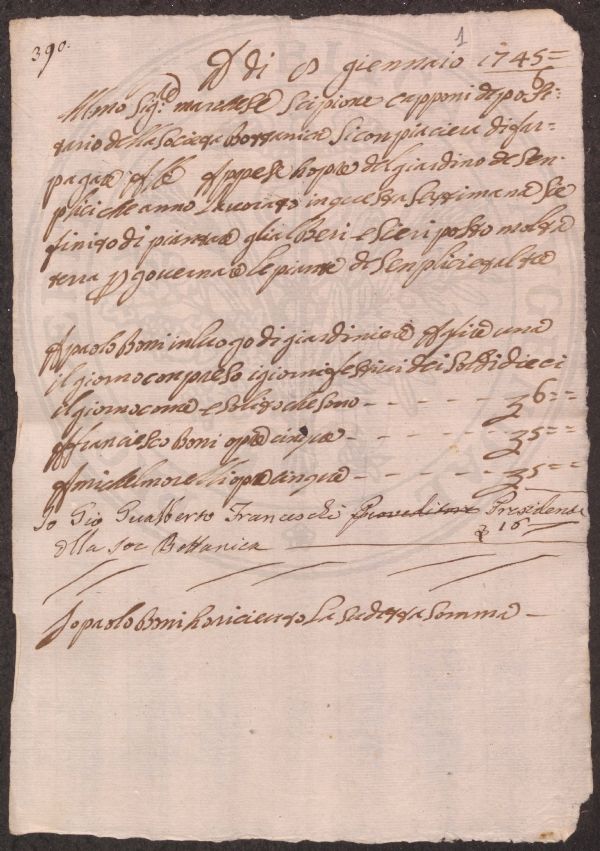 390.
1
A di 8 giennaio 1745=
6
Illmo Sig.re marchese Scipione Capponi deposi=
tario della Società Bottanica Si conpiacierà di far=
pagare Appese hopre del giardino de Sen=
plici che anno Lavorato in questa Settimana Si è
finito di piantare gli alberi e Si è ri posto molta
terra p governare le piante de Senplici e altre
A paolo Boni in luogo di giardiniere una
il giorno conpreso i giorni festivi dei Soldi dieci
il giorno come e Solito che Sono - - - - - 6==
A franciesco Boni opre cinque - - - - - 5==
A michel morelli opre cinque - - - - - 5==
Io Gio Gualberto Franceschi Proveditore Presidente
della Soc Bottanica 16
Io paolo Boni ho ricieuto La Sudetta Somma -